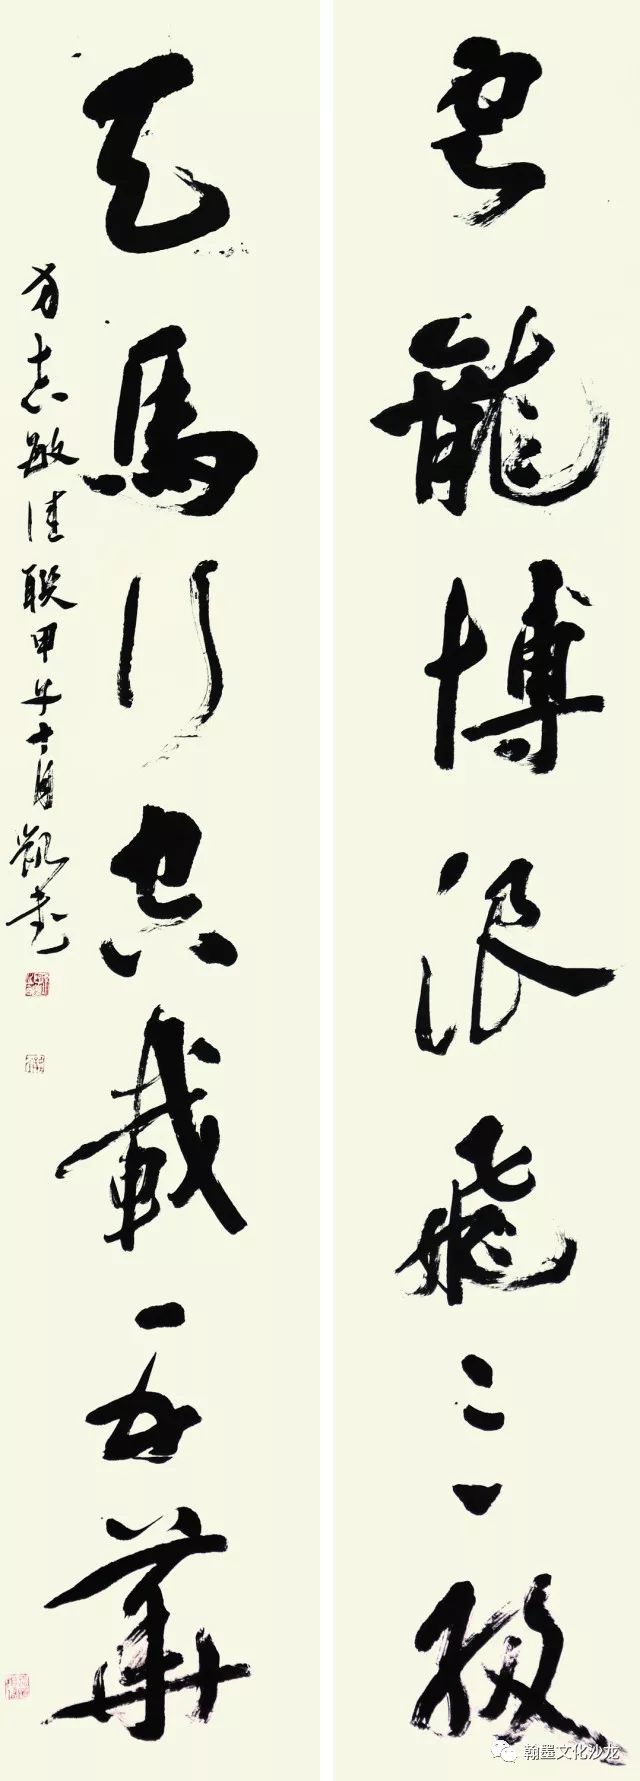 雲龍博浪飛三級
天馬行空載五華
方志敏佳聯甲午十月凱書
翰墨文化沙龙